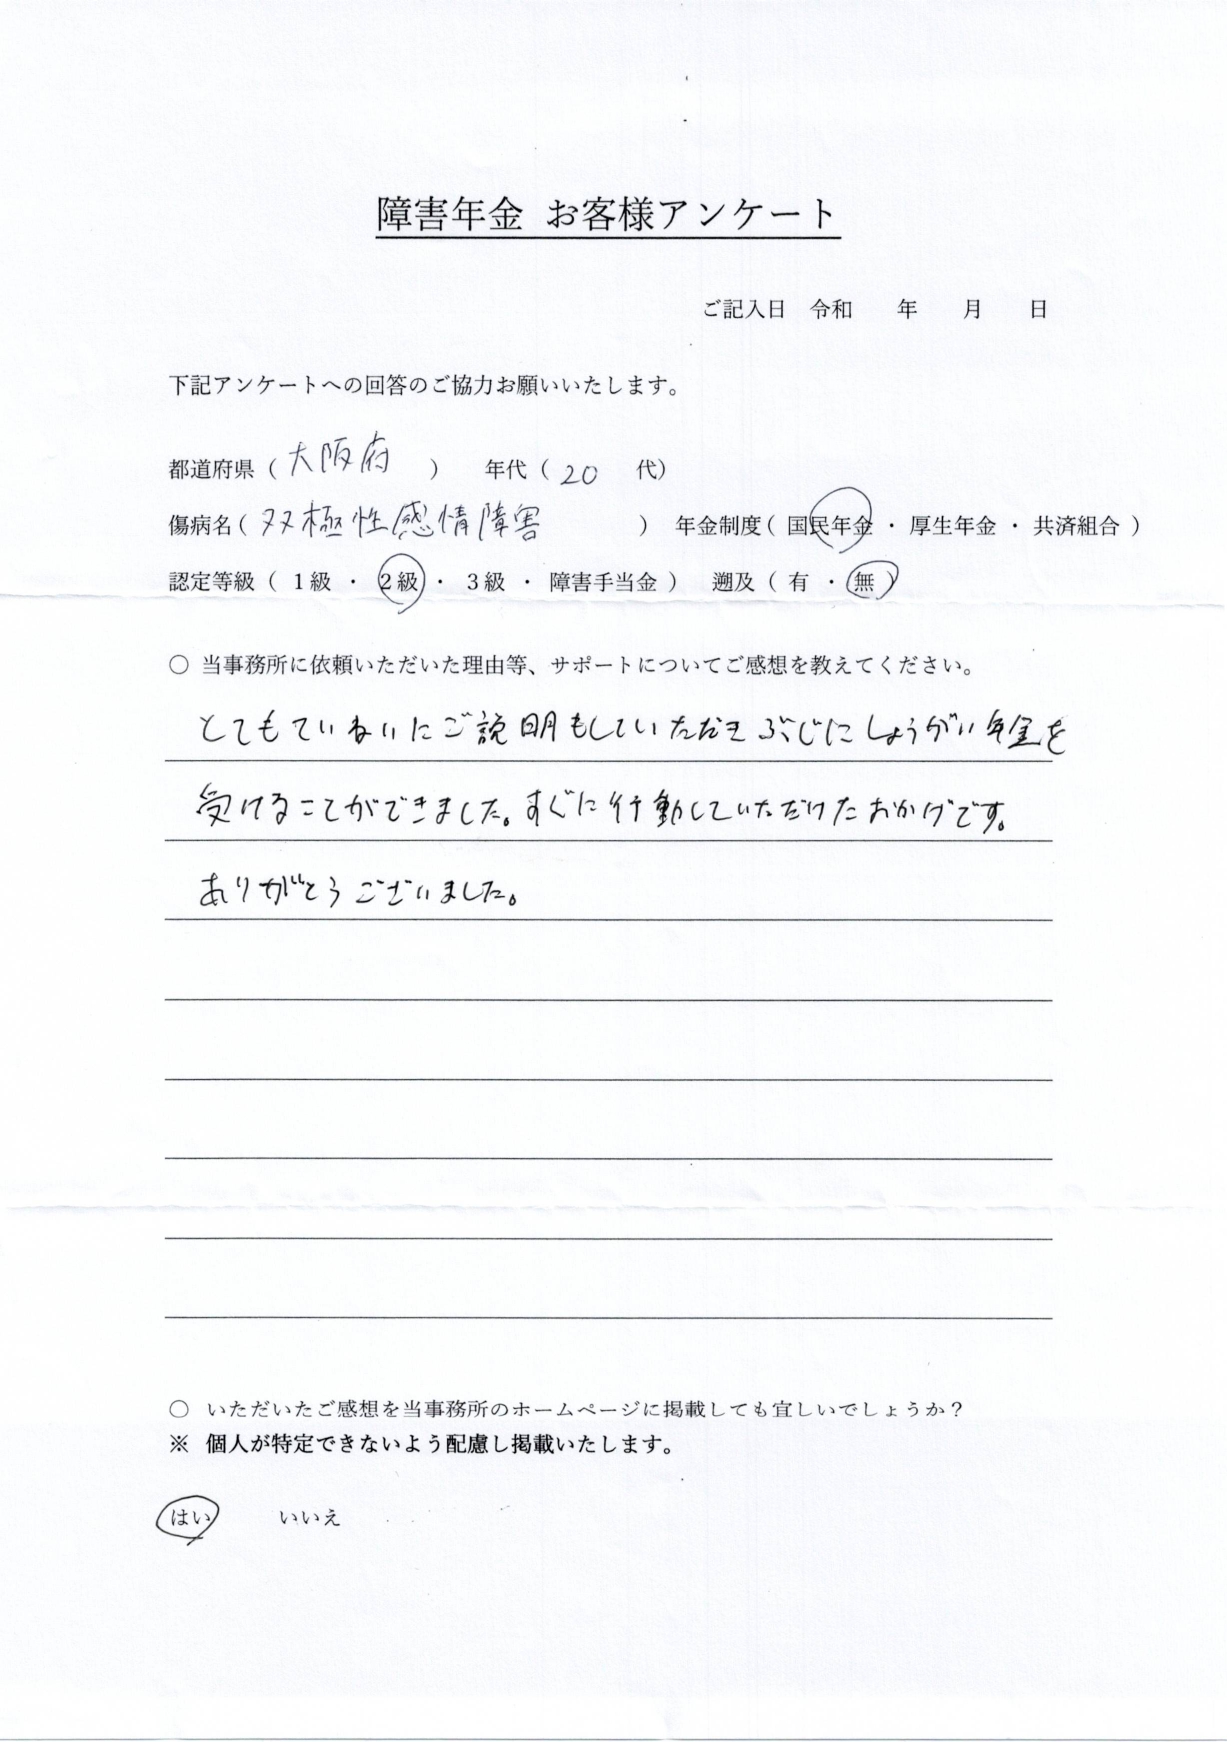 障害年金 お客様アンケート
ご記入日 令和 年 月 日
下記アンケートへの回答のご協力お願いいたします。
都道府県（大阪府） 年代（20代）
傷病名（双極性感情障害） 年金制度（国民年金・厚生年金・共済組合）
認定等級（1級・2級・3級・障害手当金） 遡及（有・無）
○ 当事務所に依頼いただいた理由等、サポートについてご感想を教えてください。
とてもていねいにご説明もしていただきぶじにしょうがい年金を
受けることができました。すぐに行動していただけたおかげです。
ありがとうございました。
○ いただいたご感想を当事務所のホームページに掲載しても宜しいでしょうか？
※ 個人が特定できないよう配慮し掲載いたします。
はい いいえ